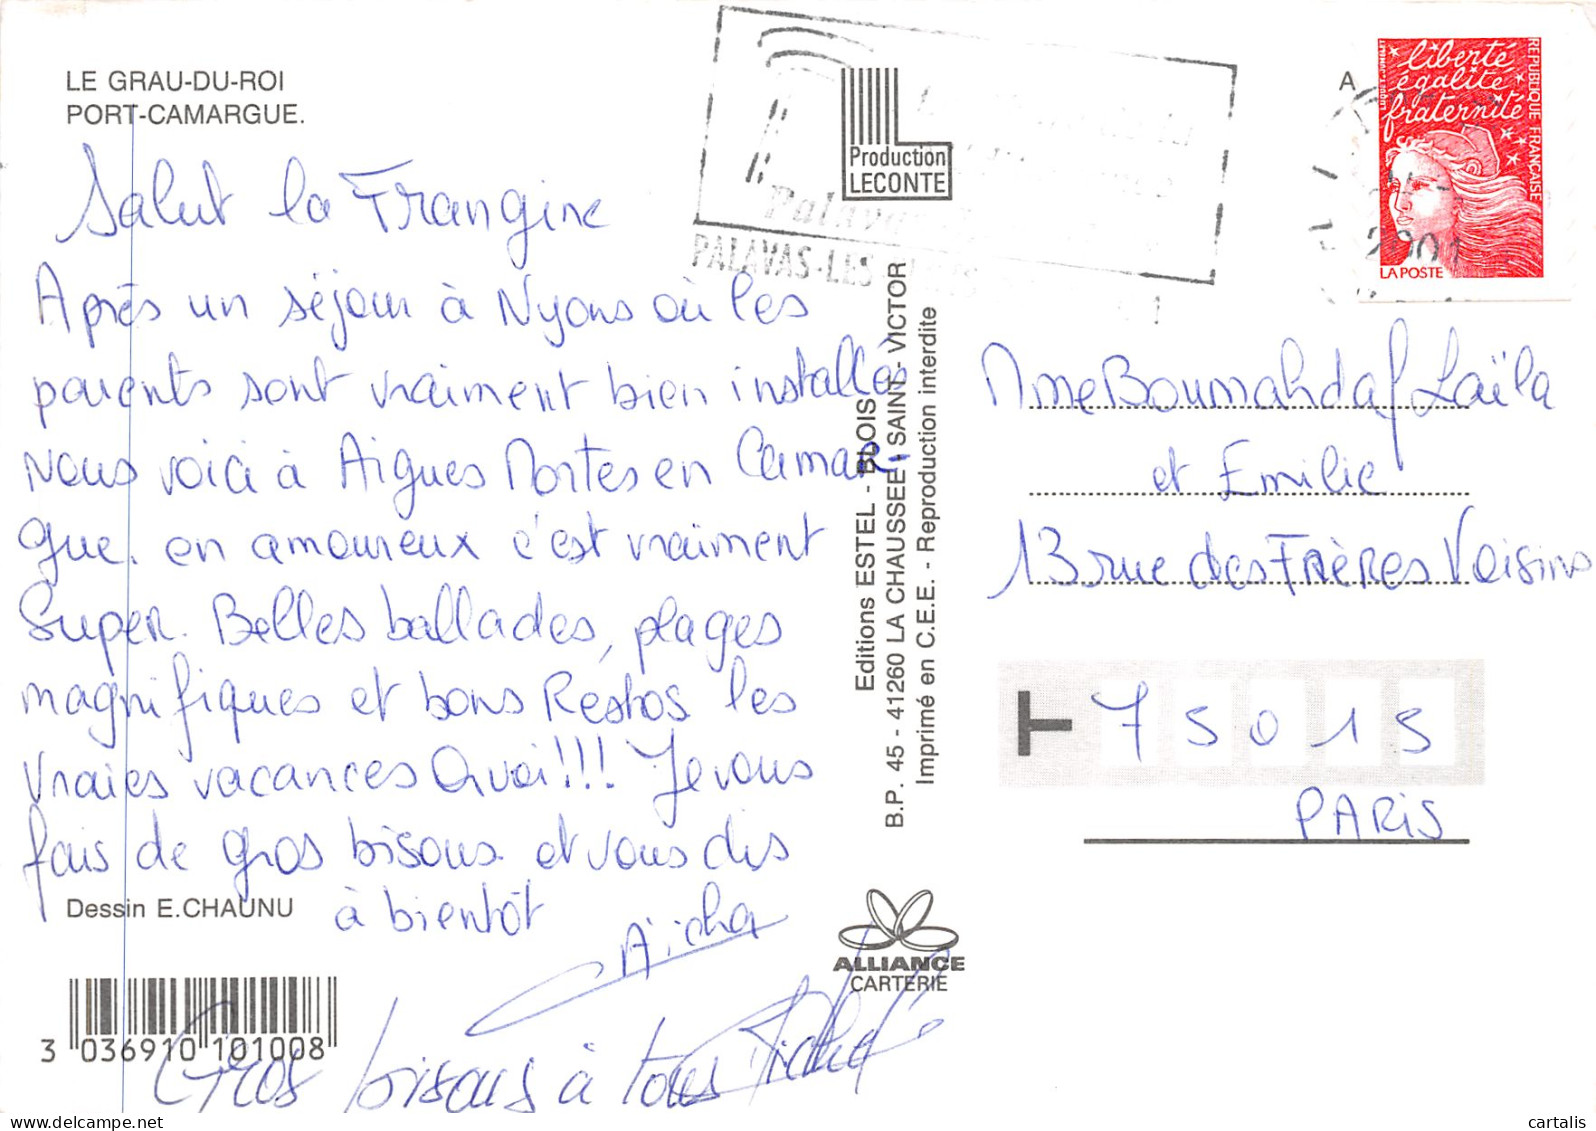 LE GRAU-DU-ROI
PORT-CAMARGUE.
Salut la Frangine
Après un séjour à Nyons où les
parents sont vraiment bien installés
Nous voici à Aigues Mortes en Camar-
gue. en amoureux c'est vraiment
Super. Belles ballades, plages
magnifiques et bons Restos les
Vraies vacances Quoi!!! Je vous
fais de gros bisous et vous dis
à bientôt
Aïcha
Gros bisous à tous
Dessin E.CHAUNU
3 036910 101008
Production
LECONTE
Palavas
PALAVAS-LES
Editions ESTEL - BLOIS
B.P. 45 - 41260 LA CHAUSSEE - SAINT- VICTOR
Imprimé en C.E.E. - Reproduction interdite
ALLIANCE
CARTERIE
A
liberté
égalité
fraternité
REPUBLIQUE FRANÇAISE
LA POSTE
2001
Mme Boumahdaf Laïla
et Emilie
13 rue des FRÈRES Voisins
75015
PARIS
cartalis
www.delcampe.net